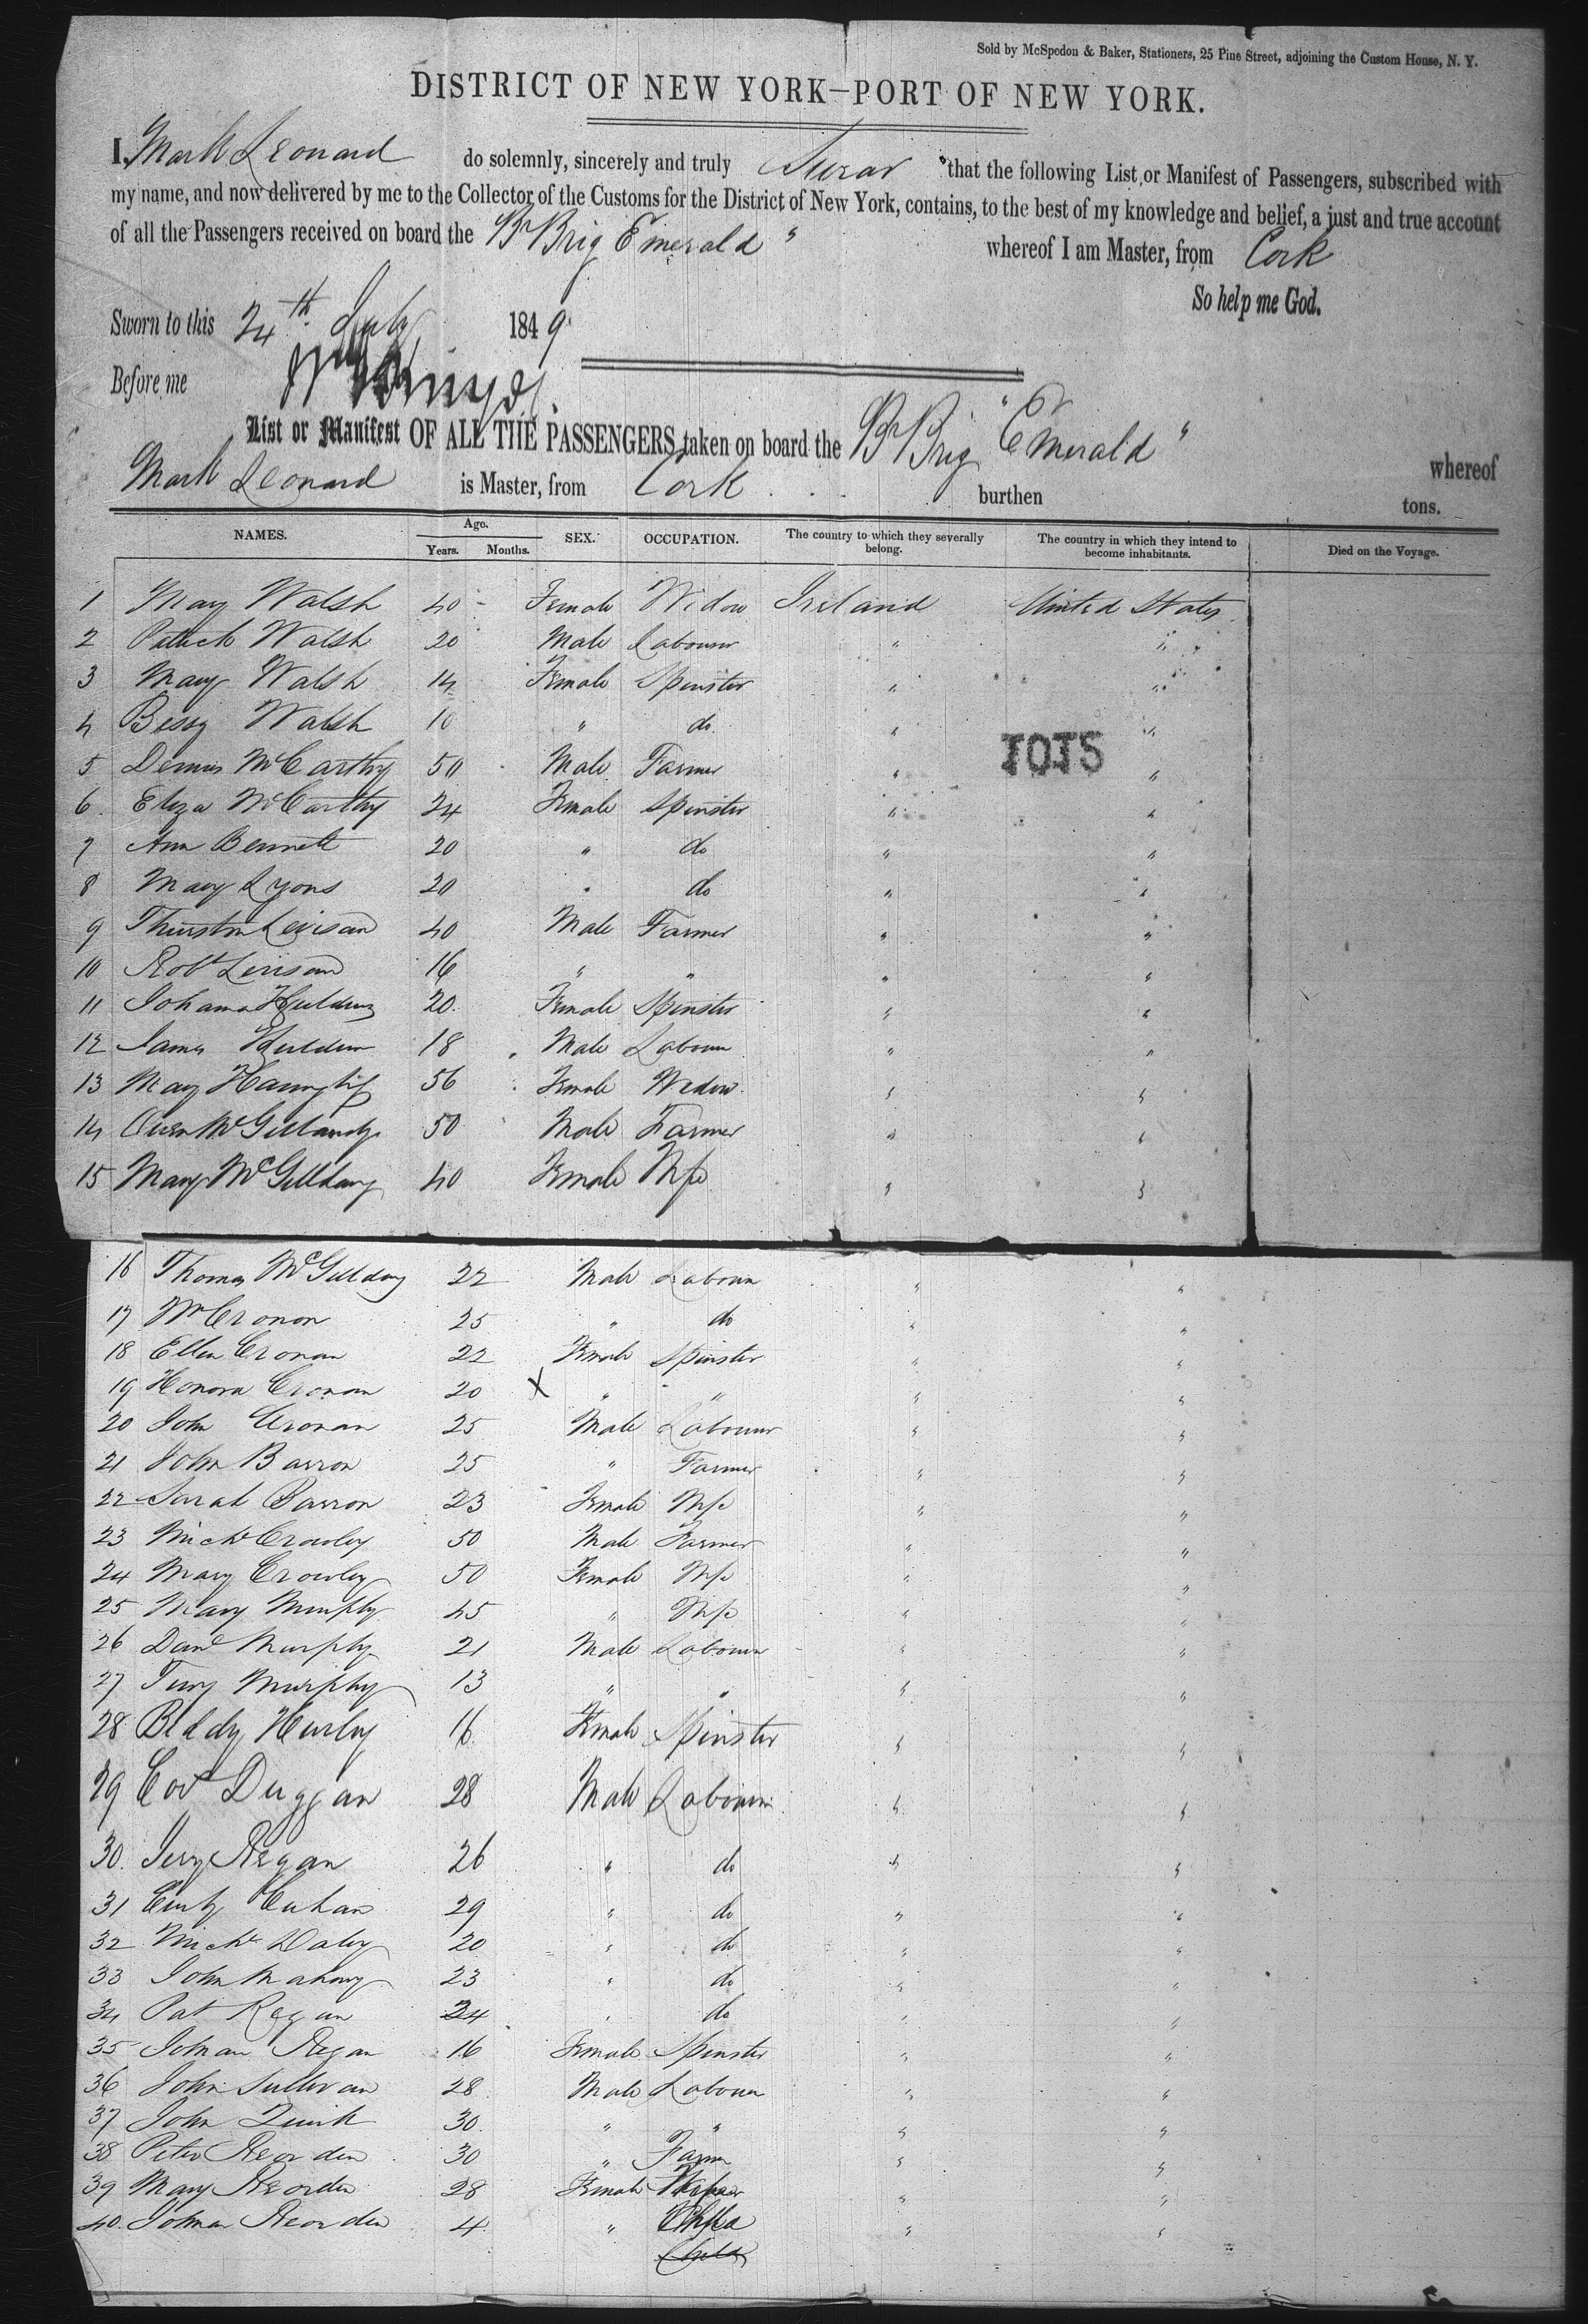 Sold by McSpedon & Baker, Stationers, 25 Pine Street, adjoining the Custom House, N. Y.
DISTRICT OF NEW YORK—PORT OF NEW YORK.
I, Mark Leonard do solemnly, sincerely and truly Swear that the following List or Manifest of Passengers, subscribed with
my name, and now delivered by me to the Collector of the Customs for the District of New York, contains, to the best of my knowledge and belief, a just and true account
of all the Passengers received on board the Br Brig Emerald " whereof I am Master, from Cork
So help me God.
Sworn to this 24th July 1849
Before me
List or Manifest OF ALL THE PASSENGERS taken on board the Br Brig "Emerald" whereof
Mark Leonard is Master, from Cork burthen tons.
NAMES. Age. Years. Months. SEX. OCCUPATION. The country to which they severally belong. The country in which they intend to become inhabitants. Died on the Voyage.
1 Mary Walsh 40 - Female Widow Ireland United States
2 Patrick Walsh 20 Male Labourer " "
3 Mary Walsh 14 Female Spinster " "
4 Bessy Walsh 10 " do " "
TOTS
5 Dennis McCarthy 50 Male Farmer " "
6 Eliza McCarthy 24 Female Spinster " "
7 Ann Bennett 20 " do " "
8 Mary Lyons 20 " do " "
9 40 Male Farmer " "
10 Robt 16 " " " "
11 Johanna 20 Female Spinster " "
12 James 18 Male Labourer " "
13 Mary 56 Female Widow " "
14 Owen 50 Male Farmer " "
15 Mary McGilldary 40 Female Wife " "
16 Thomas McGilldary 22 Male Labourer " "
17 Wm Cronon 25 " do " "
18 Ellen Cronan 22 Female Spinster " "
19 Honora Cronan 20 X " " " "
20 John Cronan 25 Male Labourer " "
21 John Barron 25 " Farmer " "
22 Sarah Barron 23 Female Wife " "
23 Michl Crowley 50 Male Farmer " "
24 Mary Crowley 50 Female Wife " "
25 Mary Murphy 45 " Wife " "
26 Danl Murphy 21 Male Labourer " "
27 Murphy 13 " " " "
28 Biddy Hurley 16 Female Spinster " "
29 Duggan 28 Male Labourer " "
30 Jerry Regan 26 " do " "
31 29 " do " "
32 Michl Daley 20 " do " "
33 John Mahony 23 " do " "
34 Pat Regan 24 " do " "
35 Johan Regan 16 Female Spinster " "
36 John Sullivan 28 Male Labourer " "
37 John Quirk 30 " " " "
38 Peter Reorden 30 " Farmer " "
39 Mary Reorden 28 Female " "
40 Johan Reorden 4 " " "
Child